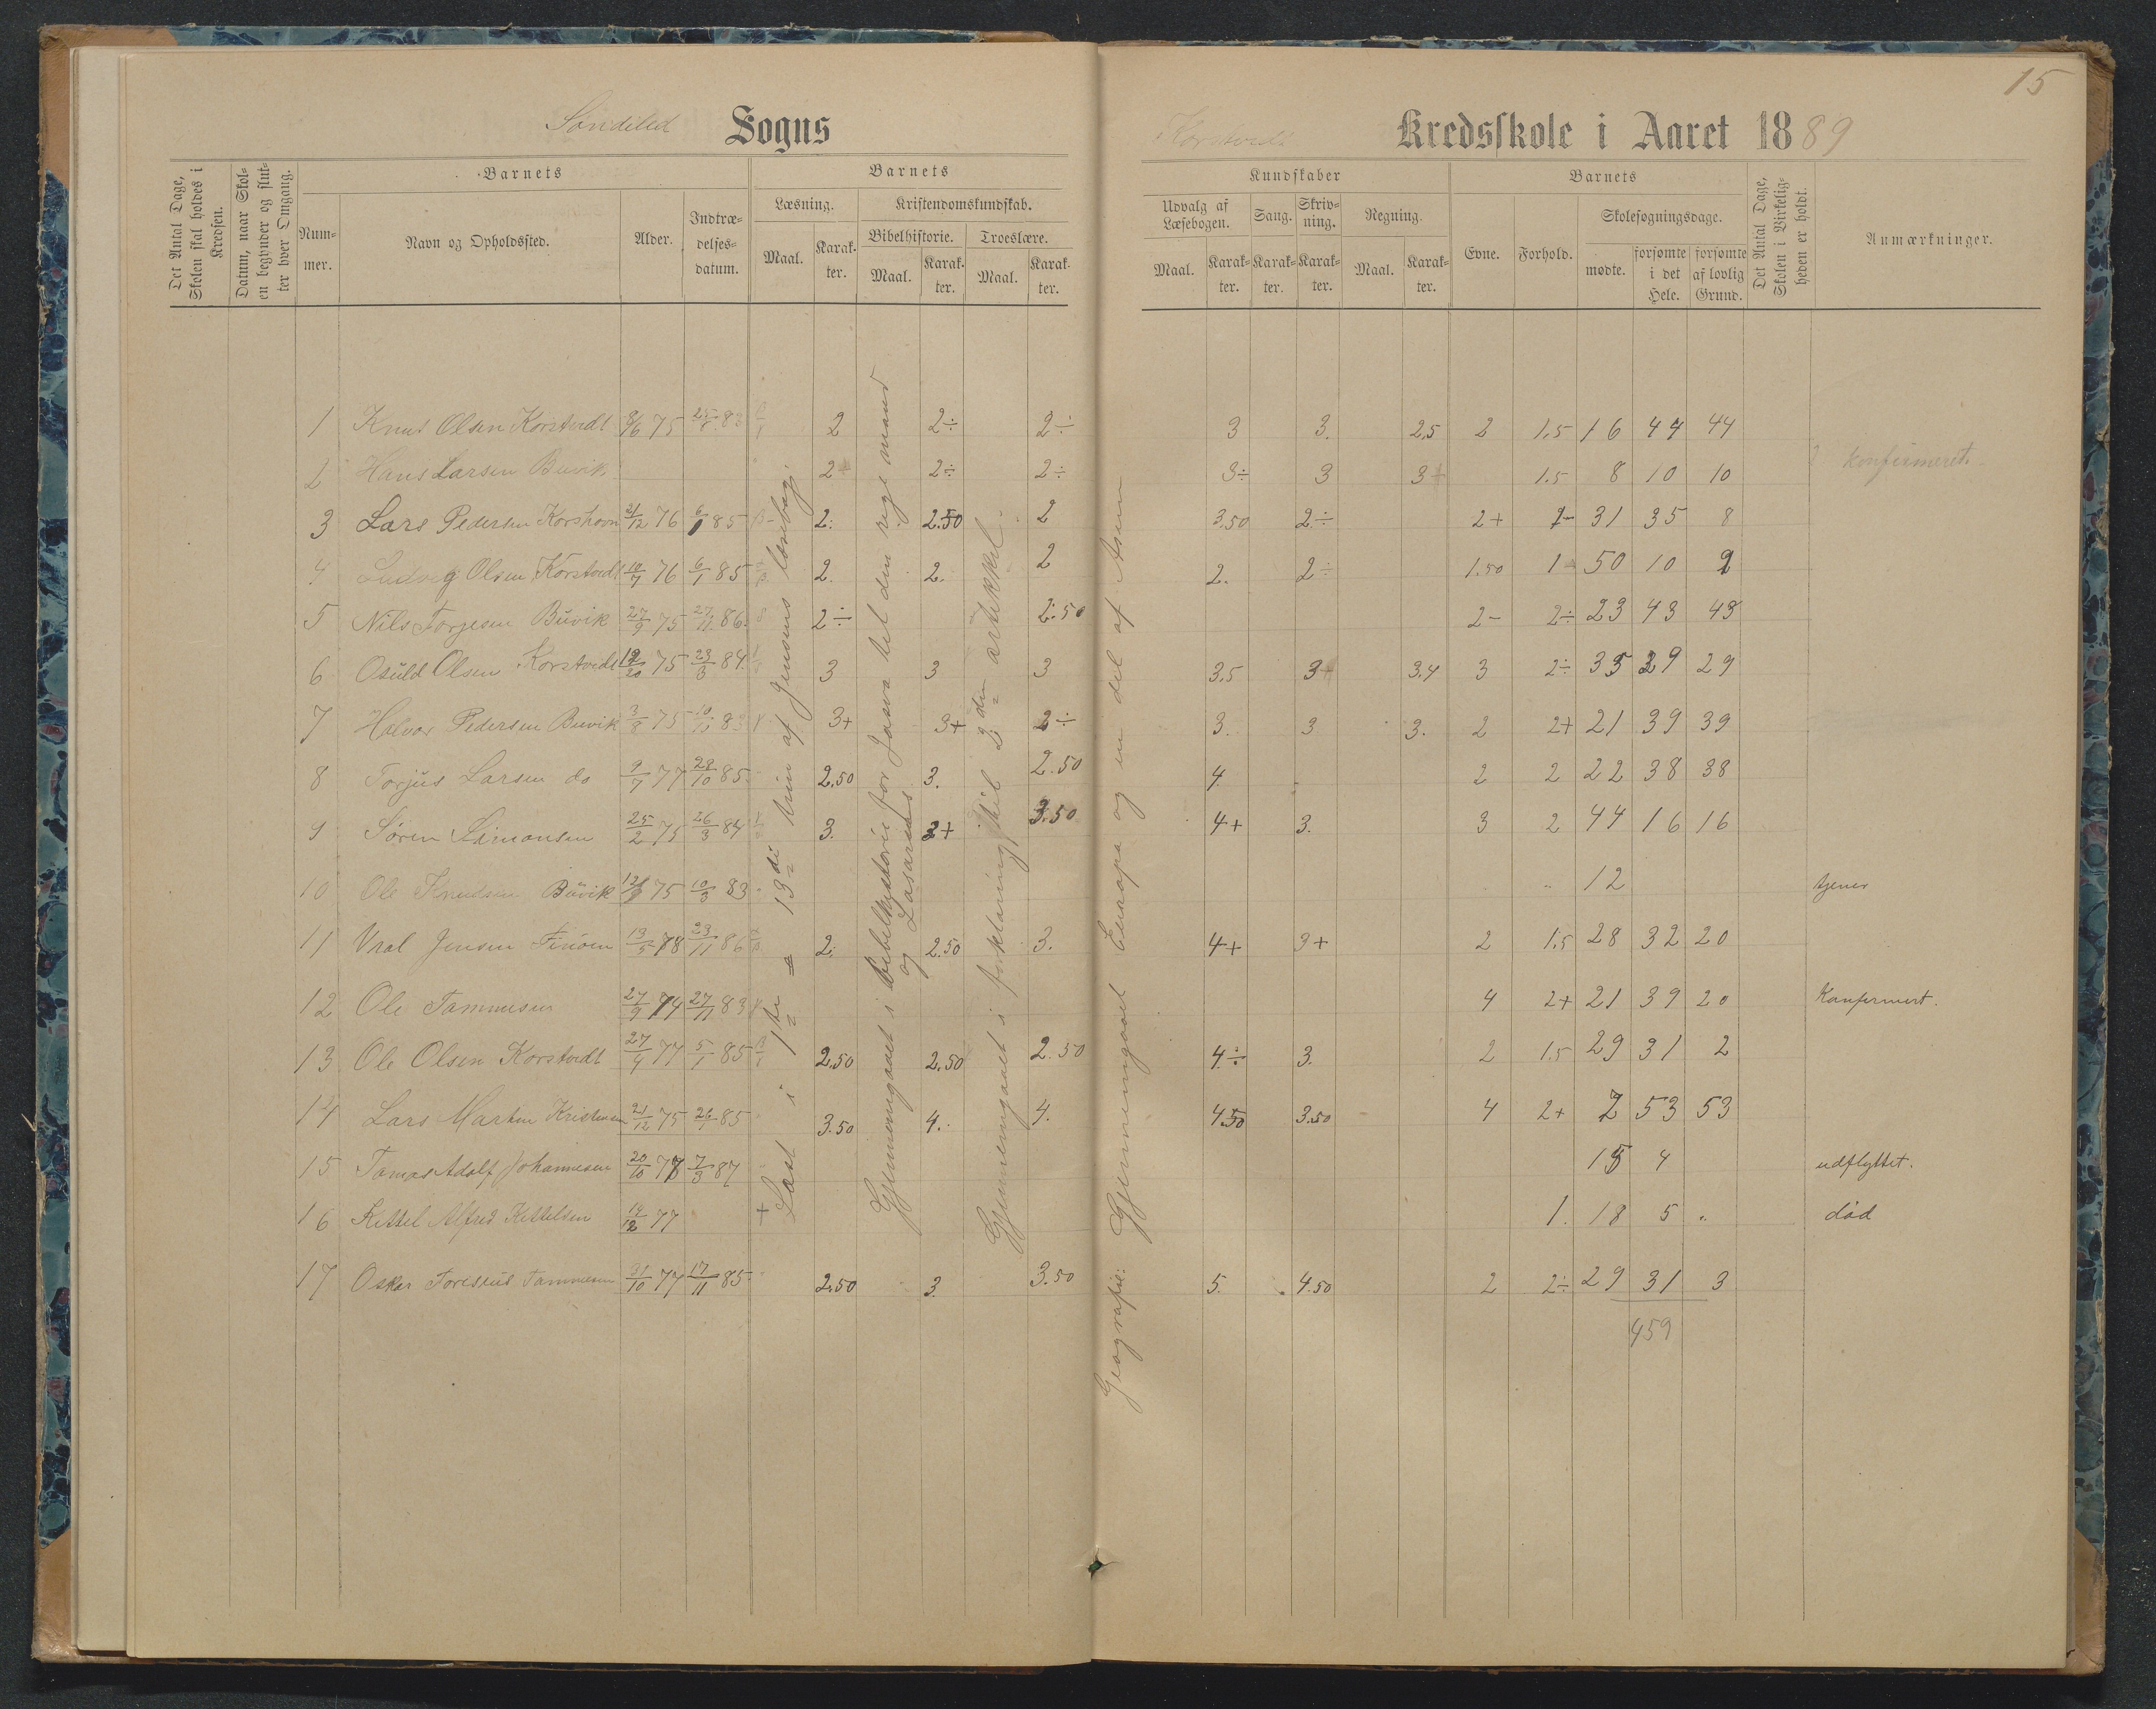 15
Søndeled Sogns
Korstvedt Kredsskole i Aaret 1889
Det Antal Dage, Skolen skal holdes i Kredsen.
Datum, naar Skolen begynder og slutter hver Omgang.
Barnets
Nummer.
Navn og Opholdssted.
Alder.
Indtrædelsesdatum.
Barnets
Læsning.
Maal. Karakter.
Kristendomskundskab.
Bibelhistorie. Troeslære.
Maal. Karakter. Maal. Karakter.
Kundskaber
Udvalg af Læsebogen. Sang. Skrivning. Regning.
Maal. Karakter. Karakter. Karakter. Maal. Karakter.
Barnets
Evne. Forhold. Skolesøgningsdage.
mødte. forsømte i det Hele. forsømte af lovlig Grund.
Det Antal Dage, Skolen i Virkeligheden er holdt.
Anmærkninger.
1 Knut Olsen Korstvedt 8/6 75 83 2 2÷ 2÷ 3 3. 2,5 2 1,5 16 44 44
2 Hans Larsen Buvik 2+ 2÷ 2÷ 3÷ 3 3+ 1.5 8 10 10 konfirmeret.
3 Lars Pedersen Korshavn 76 6/1 85 2. 2.50 2 3.50 2÷ 2+ 31 35 8
4 Ludvig Olsen Korstvedt 10/7 76 6/1 85 2. 2. 2 2. 2÷ 1.50 1 50 10 2
5 Nils Torjesen Buvik 27/9 75 27/11 86. 2÷ 2.50 2- 2÷ 23 43 43
6 Osuld Olsen Korstvedt 75 23/3 84. 3 3 3 3.5 3+ 3.4 3 2÷ 35 29 29
7 Halvor Pedersen Buvik 3/8 75 83 3+ 3+ 2÷ 3. 3 3. 2 2+ 21 39 39
8 Torjus Larsen do 9/7 77 28/10 85. 2.50 3. 2.50 4. 2 2 22 38 38
9 Søren Simonsen 25/2 75 26/3 84 3. 3+ 3.50 4+ 3. 3 2 44 16 16
10 Ole Knudsen Buvik 75 10/3 83 12 tjener
11 Vral Jensen Finøen 13/5 78 23/11 86 2. 2.50 3. 4+ 3+ 2 1.5 28 32 20
12 Ole Tammesen 27/9 74 27/11 83 4 2+ 21 39 20 Konfermert.
13 Ole Olsen Korstvedt 27/4 77 5/1 85 2.50 2.50 2.50 4÷ 3. 2 1.5 29 31 2
14 Lars Martin Kristensen 21/12 75 26/1 85 3.50 4. 4. 4.50 3.50 4 2+ 7 53 53
15 Tomas Adolf Johannesen 20/10 77 7/3 87 15 4 udflyttet.
16 Kittel Alfred Kittelsen 19/12 77 + 1. 18 5 „ død
17 Oskar Tammesen 31/10 77 17/11 85. 2.50 3. 3.50 5. 4.50 2 2÷ 29 31 3
459
Læst i 1ste = 13di trin af Jensens læsebog.
Gjennemgaaet i bibelhistorie for Jasva til den rige mand og Lasarus.
Gjennemgaaet i forklaring til 2den artikkel.
Geografie: Gjennemgaaet Euoropa og en del af Asien